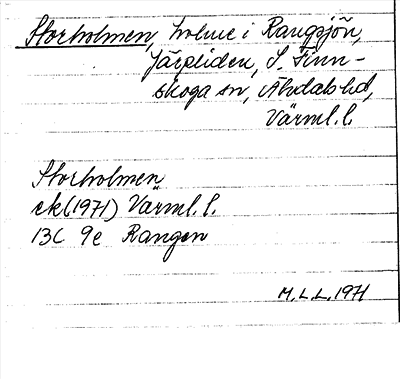 Storholmen, holme i Rangsjön,
Järpliden, S. Finn-
skoga sn, Älvdals hd,
Värml. l.
Storholmen
ek (1971) Värml. l.
13C 9e Rangen
M.L.L. 1971